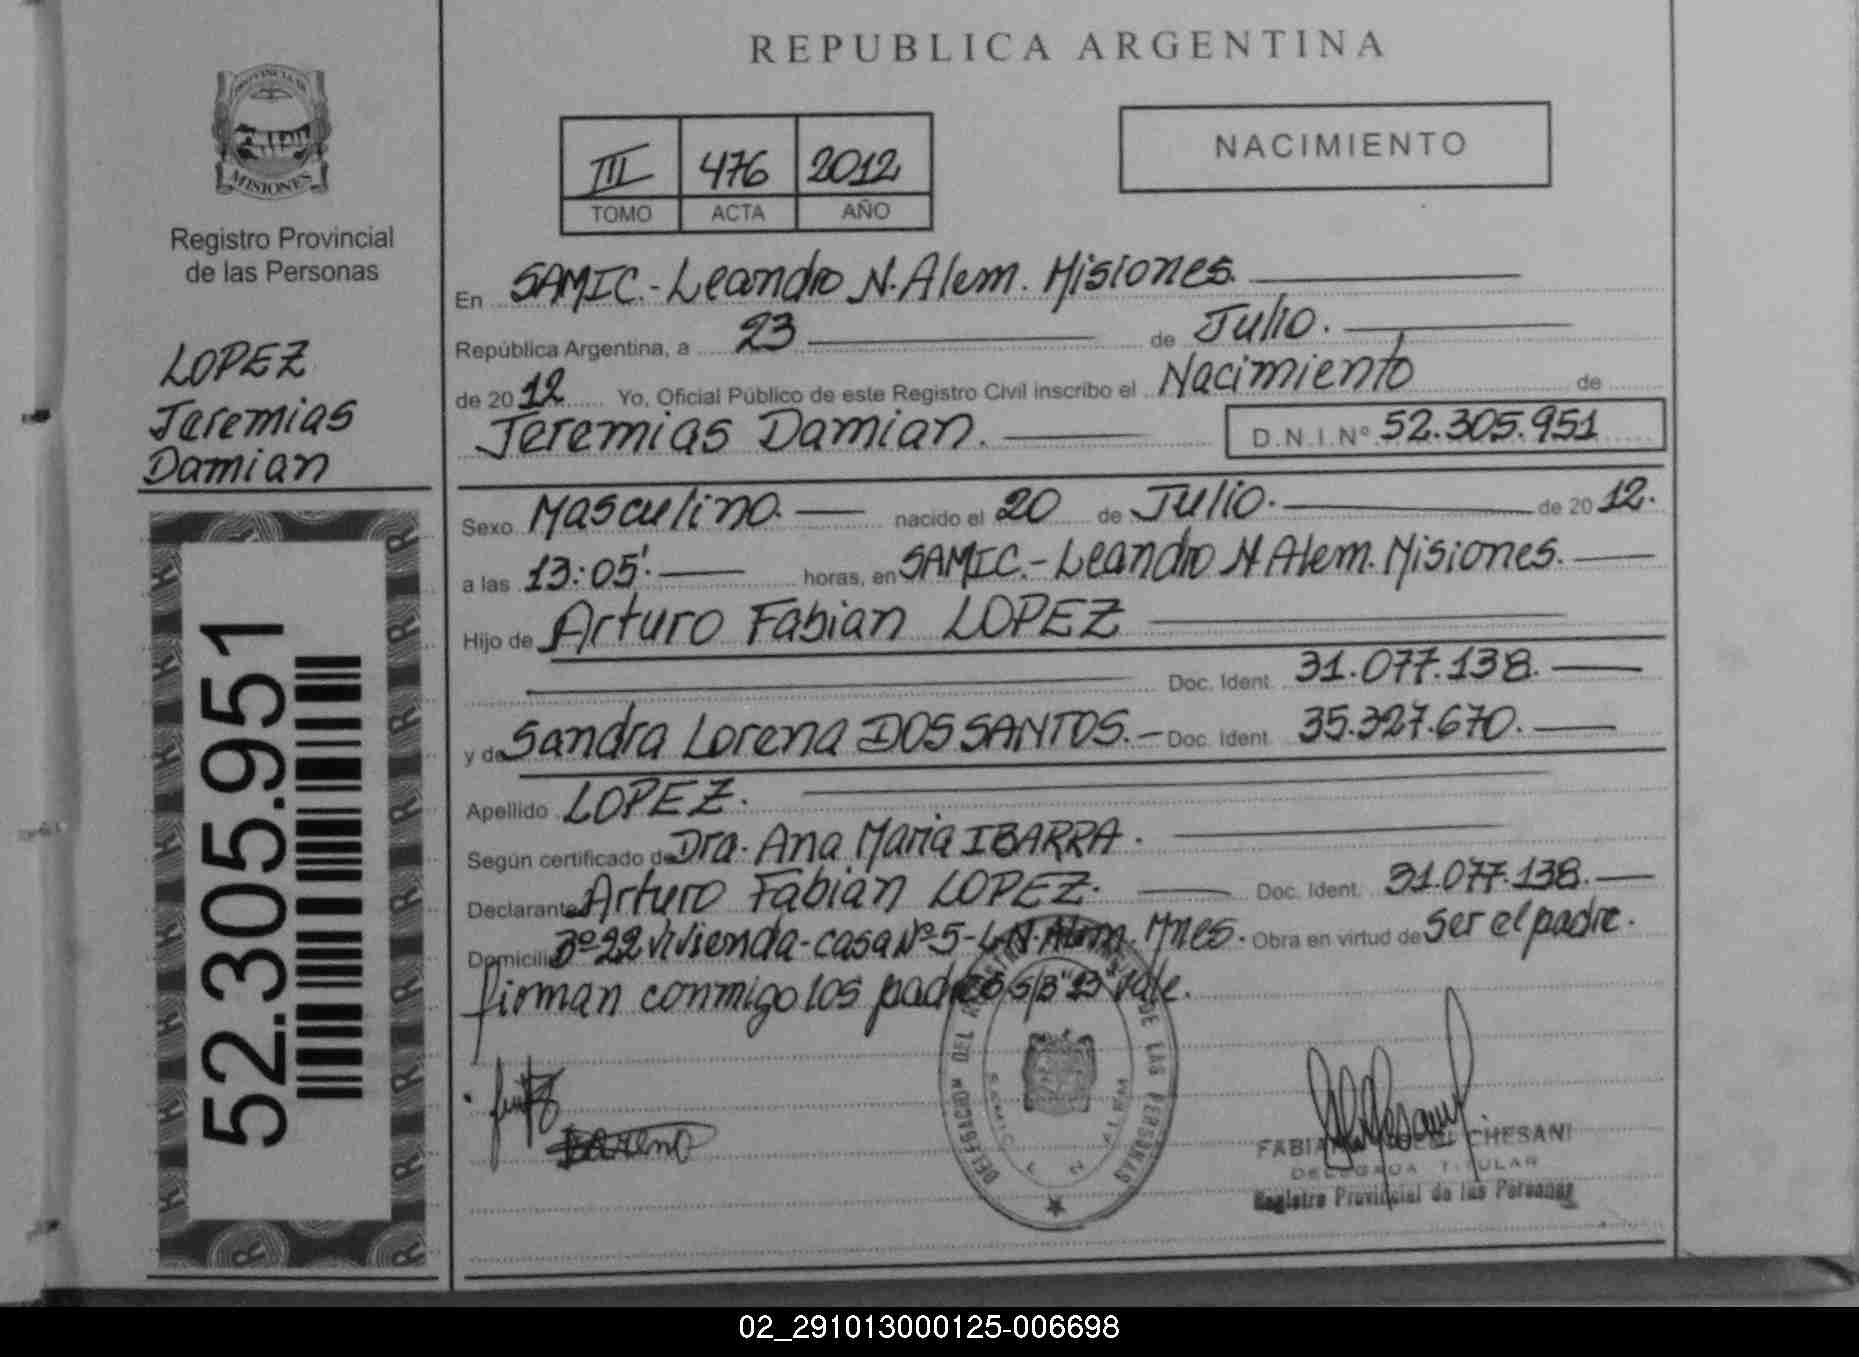 REPUBLICA ARGENTINA
PROVINCIA DE
MISIONES
Registro Provincial
de las Personas
LOPEZ
Jeremias
Damian
52.305.951
III 476 2012
TOMO ACTA AÑO
NACIMIENTO
En SAMIC.-Leandro N.Alem. Misiones.
República Argentina, a 23 de Julio.
de 2012 Yo, Oficial Público de este Registro Civil inscribo el Nacimiento de
Jeremias Damian. D.N.I.Nº 52.305.951
Sexo Masculino. nacido el 20 de Julio. de 2012.
a las 13:05'. horas, en SAMIC.-Leandro N Alem. Misiones.
Hijo de Arturo Fabian LOPEZ
Doc. Ident. 31.077.138.
y de Sandra Lorena DOS SANTOS.- Doc. Ident. 35.327.670.
Apellido LOPEZ.
Según certificado de Dra. Ana Maria IBARRA.
Declarante Arturo Fabian LOPEZ. Doc. Ident. 31.077.138.
Domicilio Bº 22 vivienda-casa Nº5-L.N.Alem. Mnes. Obra en virtud de ser el padre.
firman conmigo los padres s/B"23 vale.
DELEGACION DEL REGISTRO DE LAS PERSONAS
SAMIC L N ALEM
CHESANI
DELEGADA TITULAR
Registro Provincial de las Personas
02_291013000125-006698